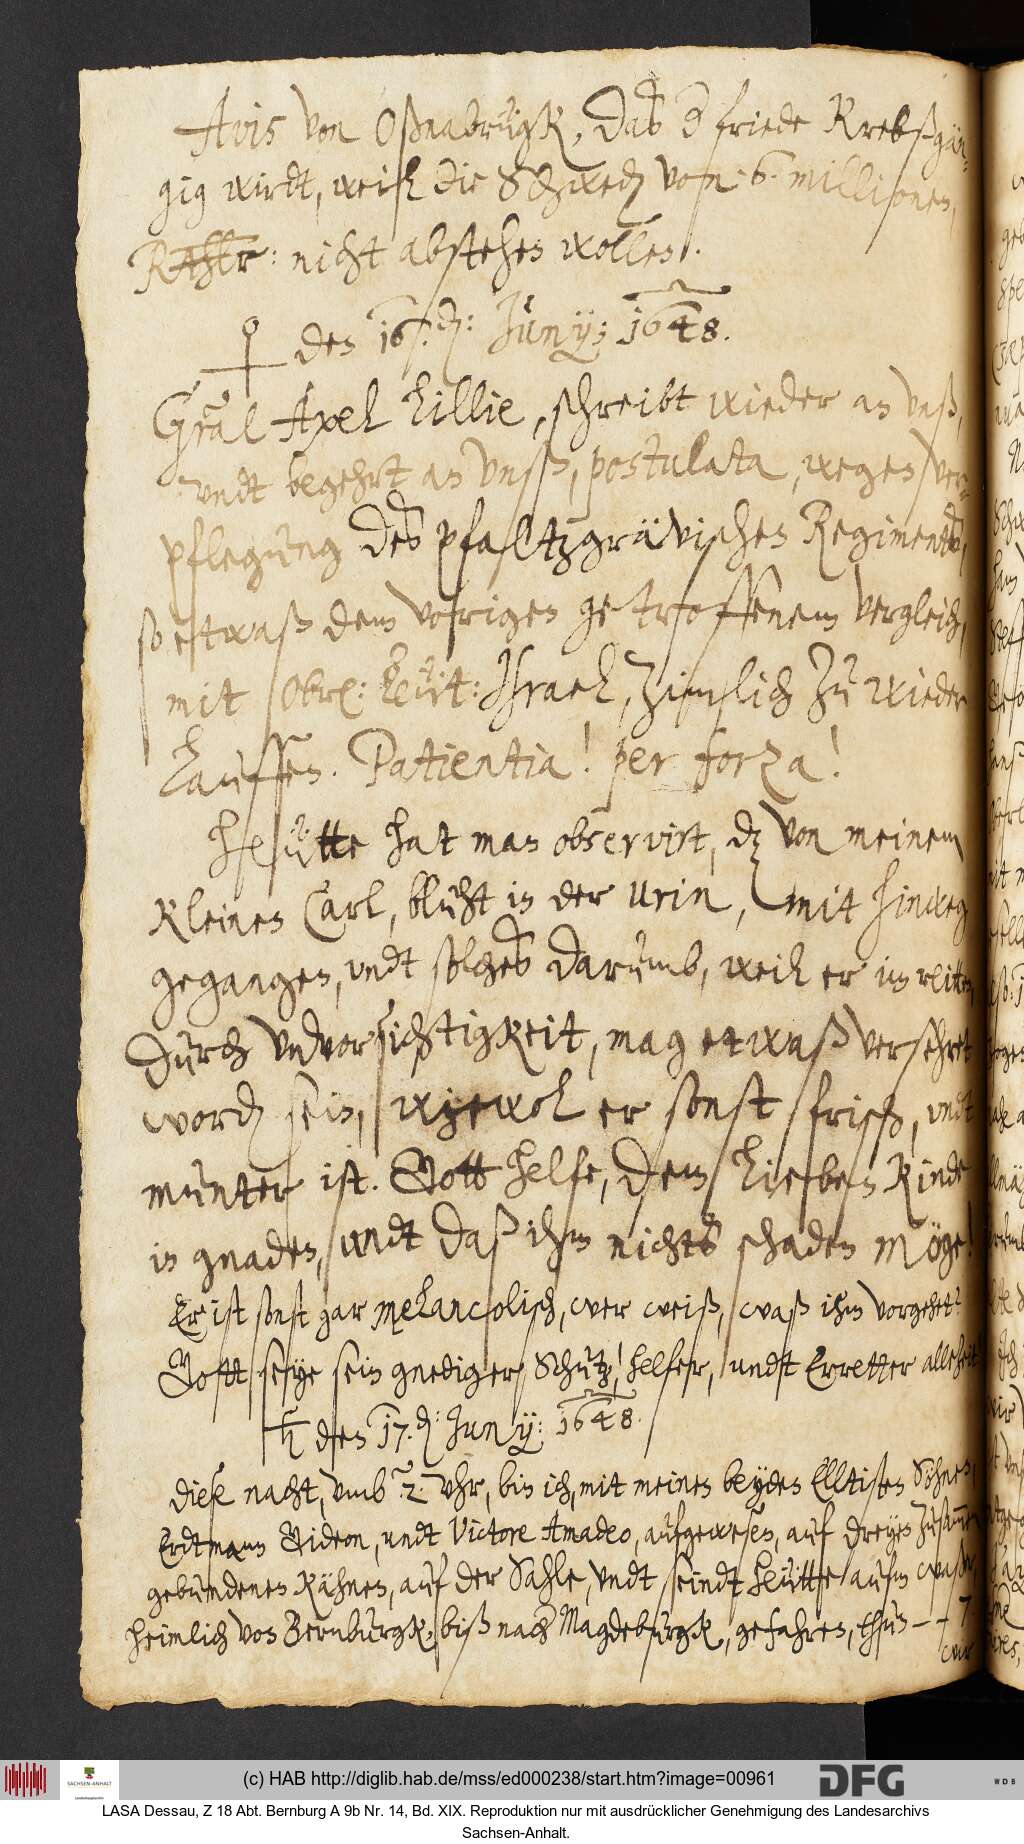 Avis von Oßnabrügk, daß d friede Krebßgän-
gig wirdt, weil die Schwed von 6. millionen,
RThlr: nicht abstehen wollen.
♀ den 16. : Junÿ: 1648.
Gräl Axel Lillie, schreibt wieder an unß,
undt begehrt an unß, postulata, wegen ver-
pflegung des pfaltzgrävischen Regiments,
so etwaß dem vorigen getroffenem vergleich,
mit Obr: Leüt: Israel, zimlich zu wieder
lauffen. Patientia! per forza!
Heütte hat man observirt, dz von meinem
kleinen Carl, bluht in der urin, mit hinweg
gegangen, undt solches darumb, weil er im reitten,
durch unvorsichtigkeit, mag etwaß versehret
word sein, wiewol er sonst frisch, undt
munter ist. Gott helfe, dem lieben Kinde
in gnaden, undt daß ihm nichts schaden möge!
Er ist sonst gar melancolisch, wer weiß, waß ihm vorgehet?
Gott seye sein gnediger Schutz, helfer, undt Erretter allezeit
♄ den 17. : Junÿ: 1648.
Diese nacht, umb 2 uhr, bin ich, mit meinen beyden Elltisten Söhnen,
Erdtmann Gideon, undt Victore Amadeo, aufgewesen, auf dreyen zusamen
gebundenen Kähnen, auf der Sahle, undt seindt heütte aufm waßer,
heimlich von Bernburgk, biß nach Magdeburgk, gefahren, thun — 7.
wir
(c) HAB http://diglib.hab.de/mss/ed000238/start.htm?image=00961
DFG
WDB
SACHSEN-ANHALT
LASA Dessau, Z 18 Abt. Bernburg A 9b Nr. 14, Bd. XIX. Reproduktion nur mit ausdrücklicher Genehmigung des Landesarchivs
Sachsen-Anhalt.